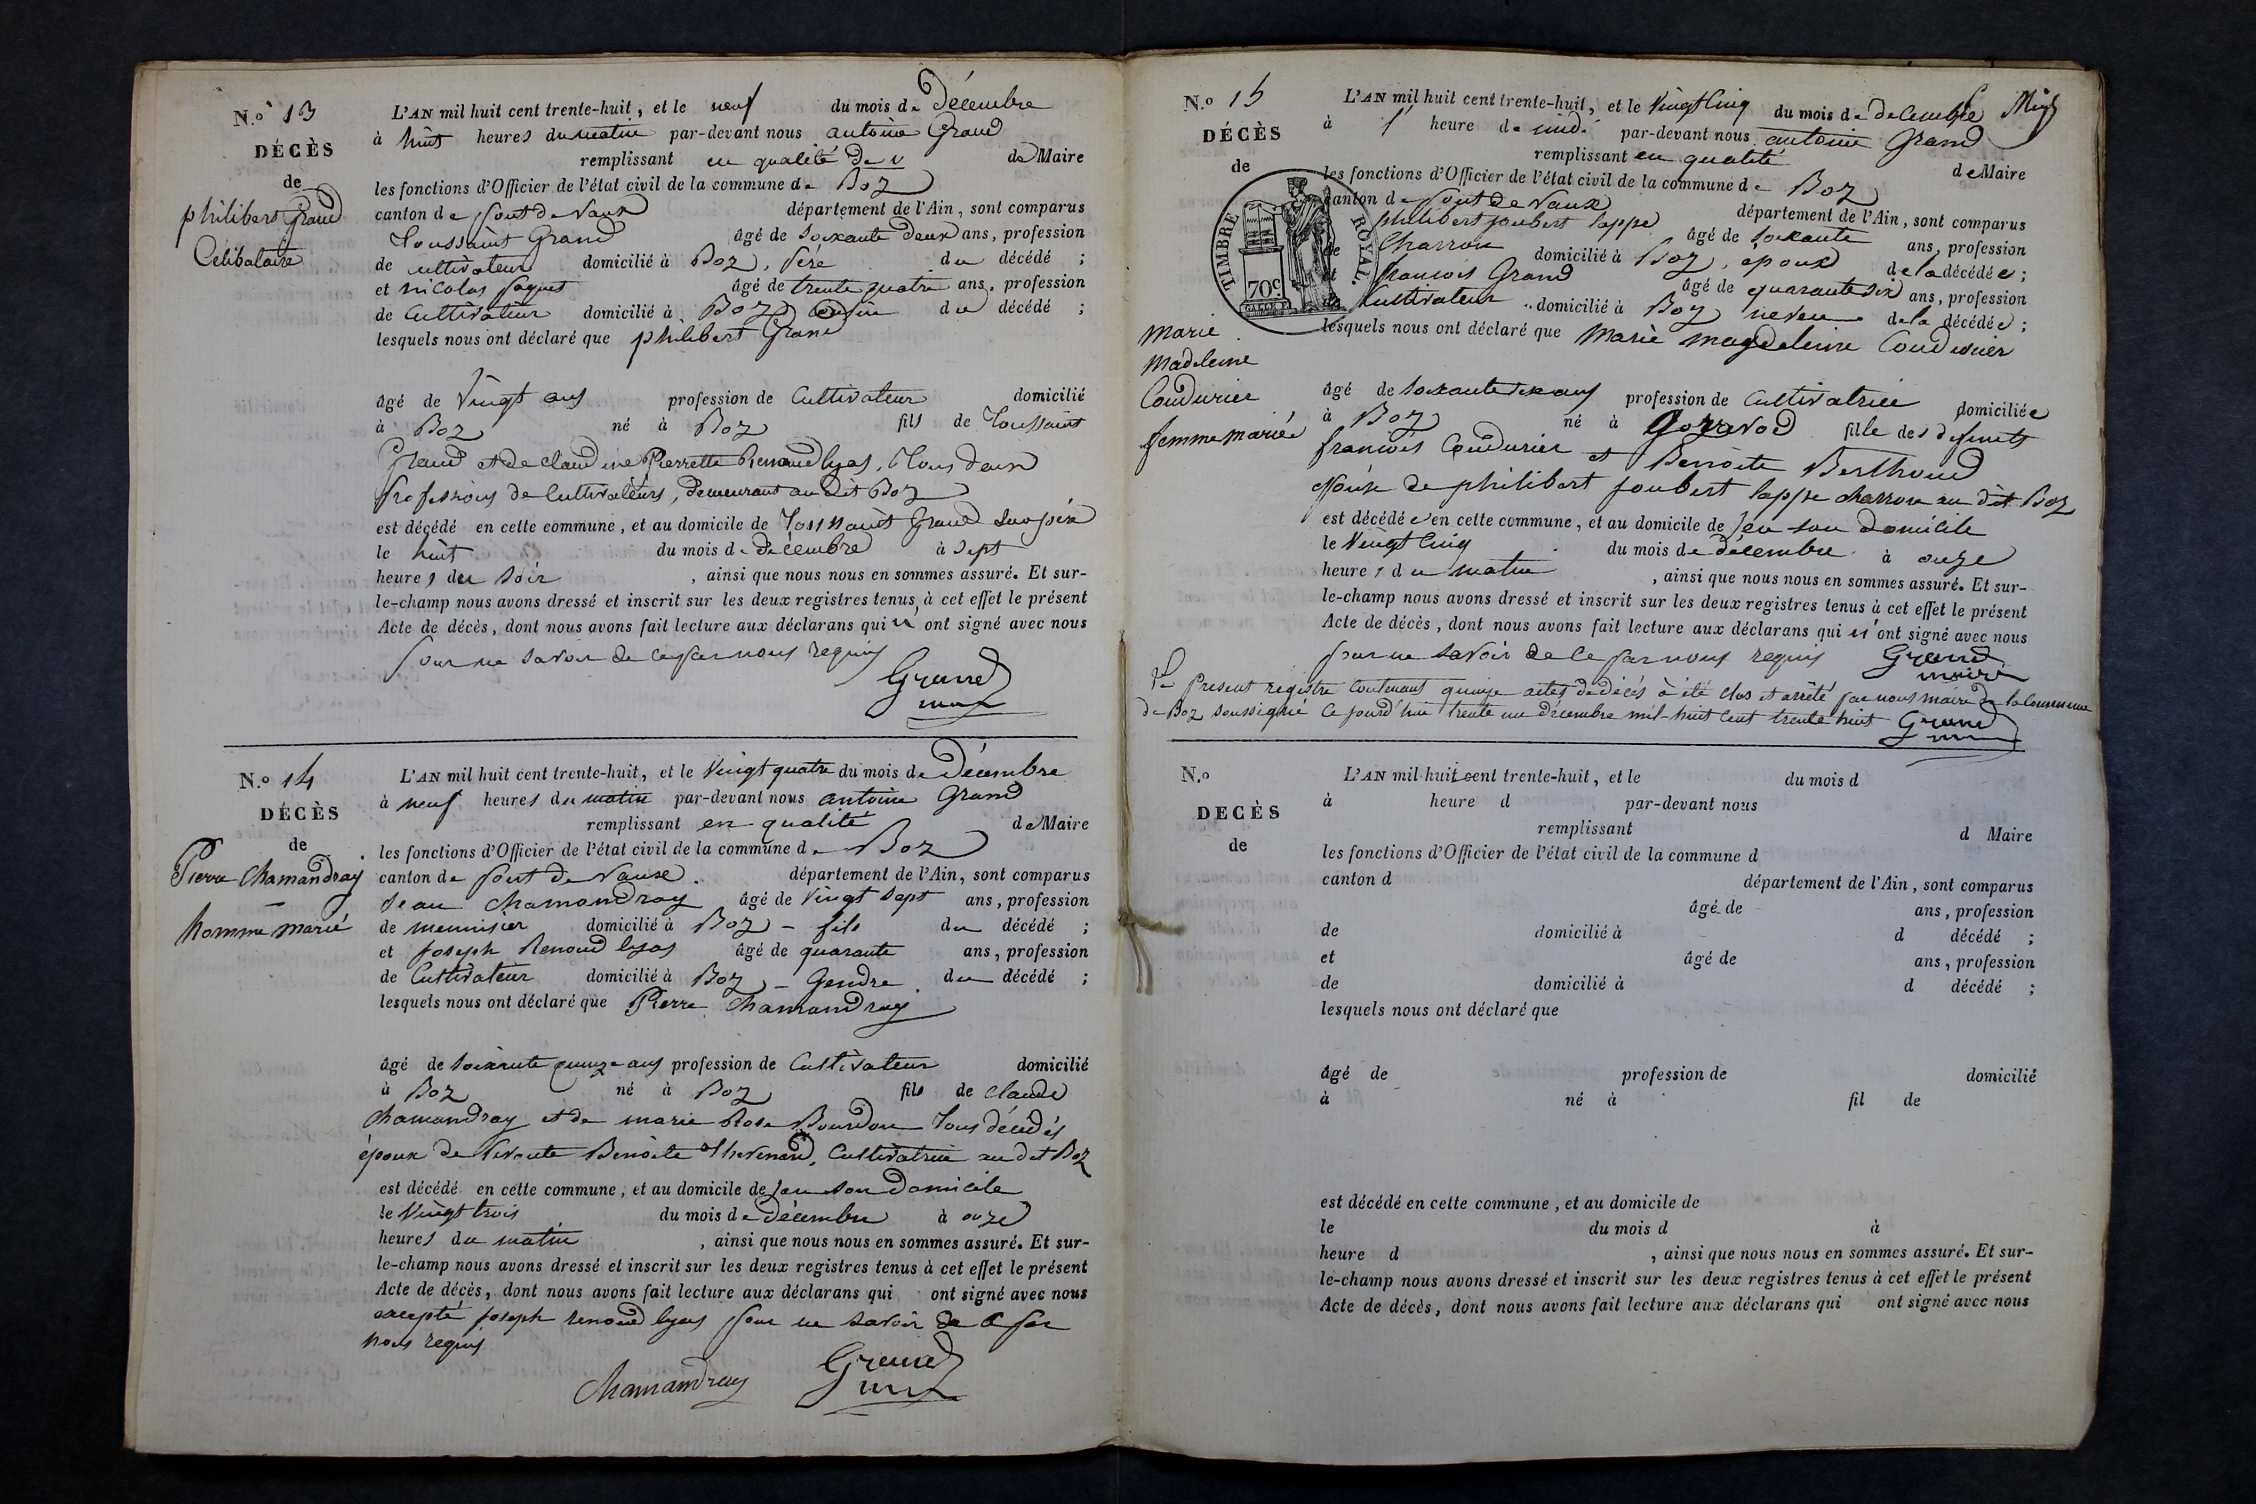 N.o 13
DÉCÈS
de
philibert Grand
Célibataire
L'AN mil huit cent trente-huit, et le neuf du mois de Décembre
à huit heures du matin par-devant nous antoine Grand
remplissant en qualité de Maire
les fonctions d'Officier de l'état civil de la commune de Boz
canton de pont de Vaux département de l'Ain, sont comparus
Toussaint Grand âgé de soixante deux ans, profession
de cultivateur domicilié à Boz, père du décédé ;
et nicolas paquet âgé de trente quatre ans, profession
de Cultivateur domicilié à Boz cousin du décédé ;
lesquels nous ont déclaré que philibert Grand
âgé de Vingt ans profession de Cultivateur domicilié
à Boz né à Boz fils de Toussaint
Grand et de claudine Pierrette Renoud lyas, Tous deux
professions de Cultivateurs, demeurant au dit Boz
est décédé en cette commune, et au domicile de Toussaint Grand son père
le huit du mois de Décembre à sept
heures du soir , ainsi que nous nous en sommes assuré. Et sur-
le-champ nous avons dressé et inscrit sur les deux registres tenus à cet effet le présent
Acte de décès, dont nous avons fait lecture aux déclarans qui n'ont signé avec nous
pour ne savoir de ce par nous requis
Grand
maire
N.o 14
DÉCÈS
de
Pierre Chamandray
homme marié
L'AN mil huit cent trente-huit, et le Vingt quatre du mois de Décembre
à neuf heures du matin par-devant nous antoine Grand
remplissant en qualité de Maire
les fonctions d'Officier de l'état civil de la commune de Boz
canton de pont de Vaux département de l'Ain, sont comparus
Jean Chamandray âgé de Vingt sept ans, profession
de menuisier domicilié à Boz - fils du décédé ;
et Joseph Renoud lyas âgé de quarante ans, profession
de Cultivateur domicilié à Boz - Gendre du décédé ;
lesquels nous ont déclaré que Pierre Chamandray
âgé de soixante quinze ans profession de Cultivateur domicilié
à Boz né à Boz fils de claude
Chamandray et de marie Rose Bourdon Tous décédés
époux de vivante Benoite Thevenard, Cultivatrice au dit Boz
est décédé en cette commune, et au domicile de en son Domicile
le Vingt trois du mois de Décembre à onze
heures du matin , ainsi que nous nous en sommes assuré. Et sur-
le-champ nous avons dressé et inscrit sur les deux registres tenus à cet effet le présent
Acte de décès, dont nous avons fait lecture aux déclarans qui ont signé avec nous
excepté joseph renoud lyas pour ne savoir de ce par
nous requis
Chamandray Grand
maire
N.o 15
DÉCÈS
de
TIMBRE ROYAL.
70c
marie
Madeleine
Coudurier
femme mariée
L'AN mil huit cent trente-huit, et le Vingt Cinq du mois de decembre
à 1 heure de midi par-devant nous antoine Grand
remplissant en qualité de Maire
les fonctions d'Officier de l'état civil de la commune de Boz
canton de pont de Vaux département de l'Ain, sont comparus
philibert joubert lappe âgé de soixante ans, profession
de Charron domicilié à Boz, epoux de la décédée ;
et francois Grand âgé de quarante six ans, profession
de Cultivateur domicilié à Boz neveu de la décédée ;
lesquels nous ont déclaré que Marie magdeleine Coudurier
âgé de soixante six ans profession de Cultivatrice domiciliée
à Boz né à Gorrevod fille des defunts
francois Coudurier et Benoite Berthoud
épouse de philibert joubert lappe charron au dit Boz
est décédée en cette commune, et au domicile de en son Domicile
le Vingt Cinq du mois de décembre à onze
heures du matin , ainsi que nous nous en sommes assuré. Et sur-
le-champ nous avons dressé et inscrit sur les deux registres tenus à cet effet le présent
Acte de décès, dont nous avons fait lecture aux déclarans qui n'ont signé avec nous
pour ne savoir de ce par nous requis Grand
maire
Le Present registre Contenant quinze actes de décès à été clos et arrêté par nous maire de la Commune
de Boz soussigné Ce jourd'hui trente un décembre mil-huit cent trente huit Grand
maire
N.o
DECÈS
de
L'AN mil huit cent trente-huit, et le du mois d
à heure d par-devant nous
remplissant d Maire
les fonctions d'Officier de l'état civil de la commune d
canton d département de l'Ain, sont comparus
âgé de ans, profession
de domicilié à d décédé ;
et âgé de ans, profession
de domicilié à d décédé ;
lesquels nous ont déclaré que
âgé de profession de domicilié
à né à fil de
est décédé en cette commune, et au domicile de
le du mois d à
heure d , ainsi que nous nous en sommes assuré. Et sur-
le-champ nous avons dressé et inscrit sur les deux registres tenus à cet effet le présent
Acte de décès, dont nous avons fait lecture aux déclarans qui ont signé avec nous